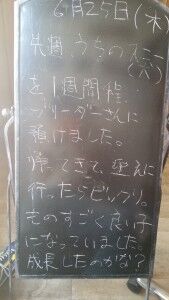 6月25日(木)
先週、うちのスニー(犬)
を1週間程、
ブリーダーさんに
預けました。
帰ってきて、迎えに
行ったらビックリ。
ものすごく良い子
になっていました。
成長したのかな?